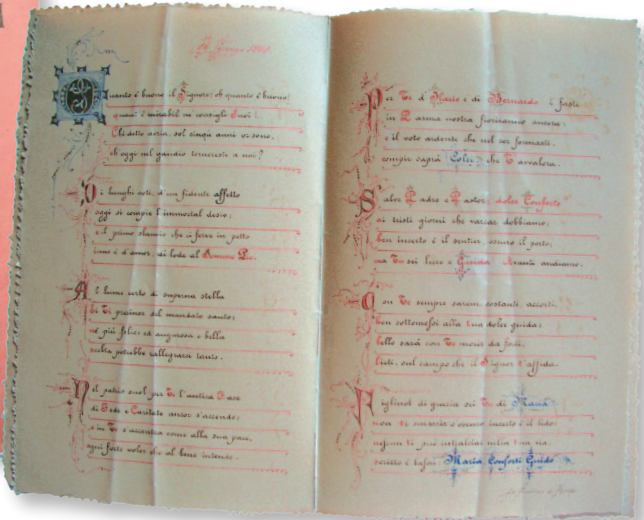 Quanto è buono il Signore! oh quanto è buono!
quant' è mirabil ne' consigli Suoi!
Chi detto avria, sol cinque anni or sono,
ch'oggi nel gaudio torneresti a noi?
Di lunghi voti, d'un fidente affetto
oggi si compie l'immortal desio;
e il primo slancio che ci ferve in petto
inno è d'amor, di lode al
Al lume certo di superna stella
Te precinse del mandato santo;
né più felice ed augurosa e bella
scelta potrebbe rallegrarci tanto.
Nel patrio suol per Te l'antica Face
di Fede e Caritate ancor s'accende;
e in Te s'accentra come alla sua pace,
ogni forte voler che al bene intende.
Per Te d' Ilario e di Bernardo i fasti
in Parma nostra fioriranno ancora;
e il voto ardente che nel cor formasti,
compir saprà Colei che T'avvalora.
Salve Padre e Pastor, dolce Conforto
ai tristi giorni che varcar dobbiamo;
ben incerto è il sentier, oscuro il porto;
ma Tu sei luce e Avanti andiamo.
Con Te sempre sarem, costanti, accorti,
ben sottomessi alla tua dolce guida;
bello sarà con Te morir da forti,
lieti, sul campo che il Signor t'affida.
Figliuol di grazia sei Tu di Maria
non Ti smarrir se oscuro incerto è il lido;
nessun ti può intralciar nella tua via,
scritto è lassù: Maria Conforti Guido